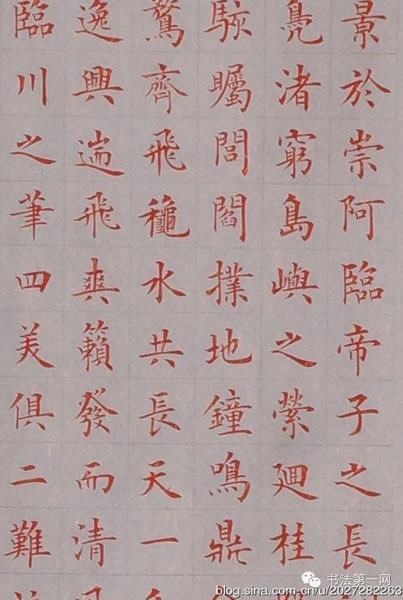 景於崇阿臨帝子之長
鳧渚窮島嶼之縈廻桂
駭矚閭閻撲地鐘鳴鼎
鶩齊飛穐水共長天一
逸興遄飛爽籟發而清
臨川之筆四美俱二難
书法第一网
blog.sina.com.cn/u/2027282263